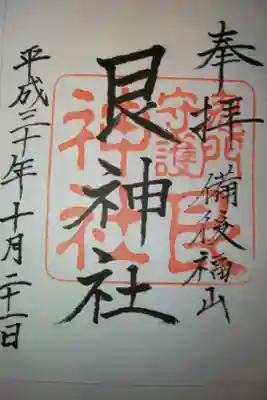 奉拝
備後福山
艮神社
鬼門
守護
艮
神社
平成三十年十月二十一日